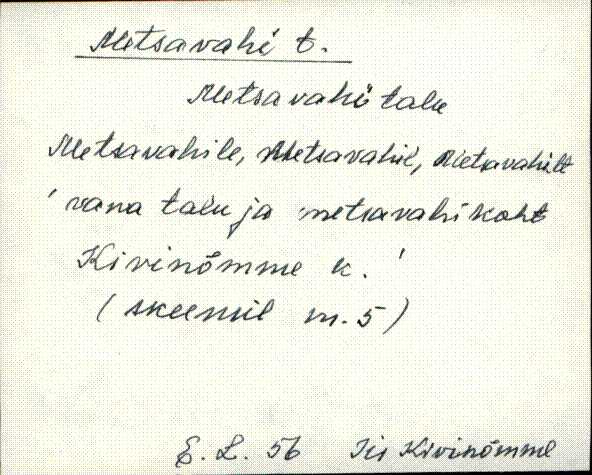 Metsavahi t.
Metsavahi talu
Metsavahile, Metsavahil, Metsavahilt
'vana talu ja metsavahikoht
Kivinõmme k.'
(skeemil m. 5)
E. L. 56 Iis Kivinõmme